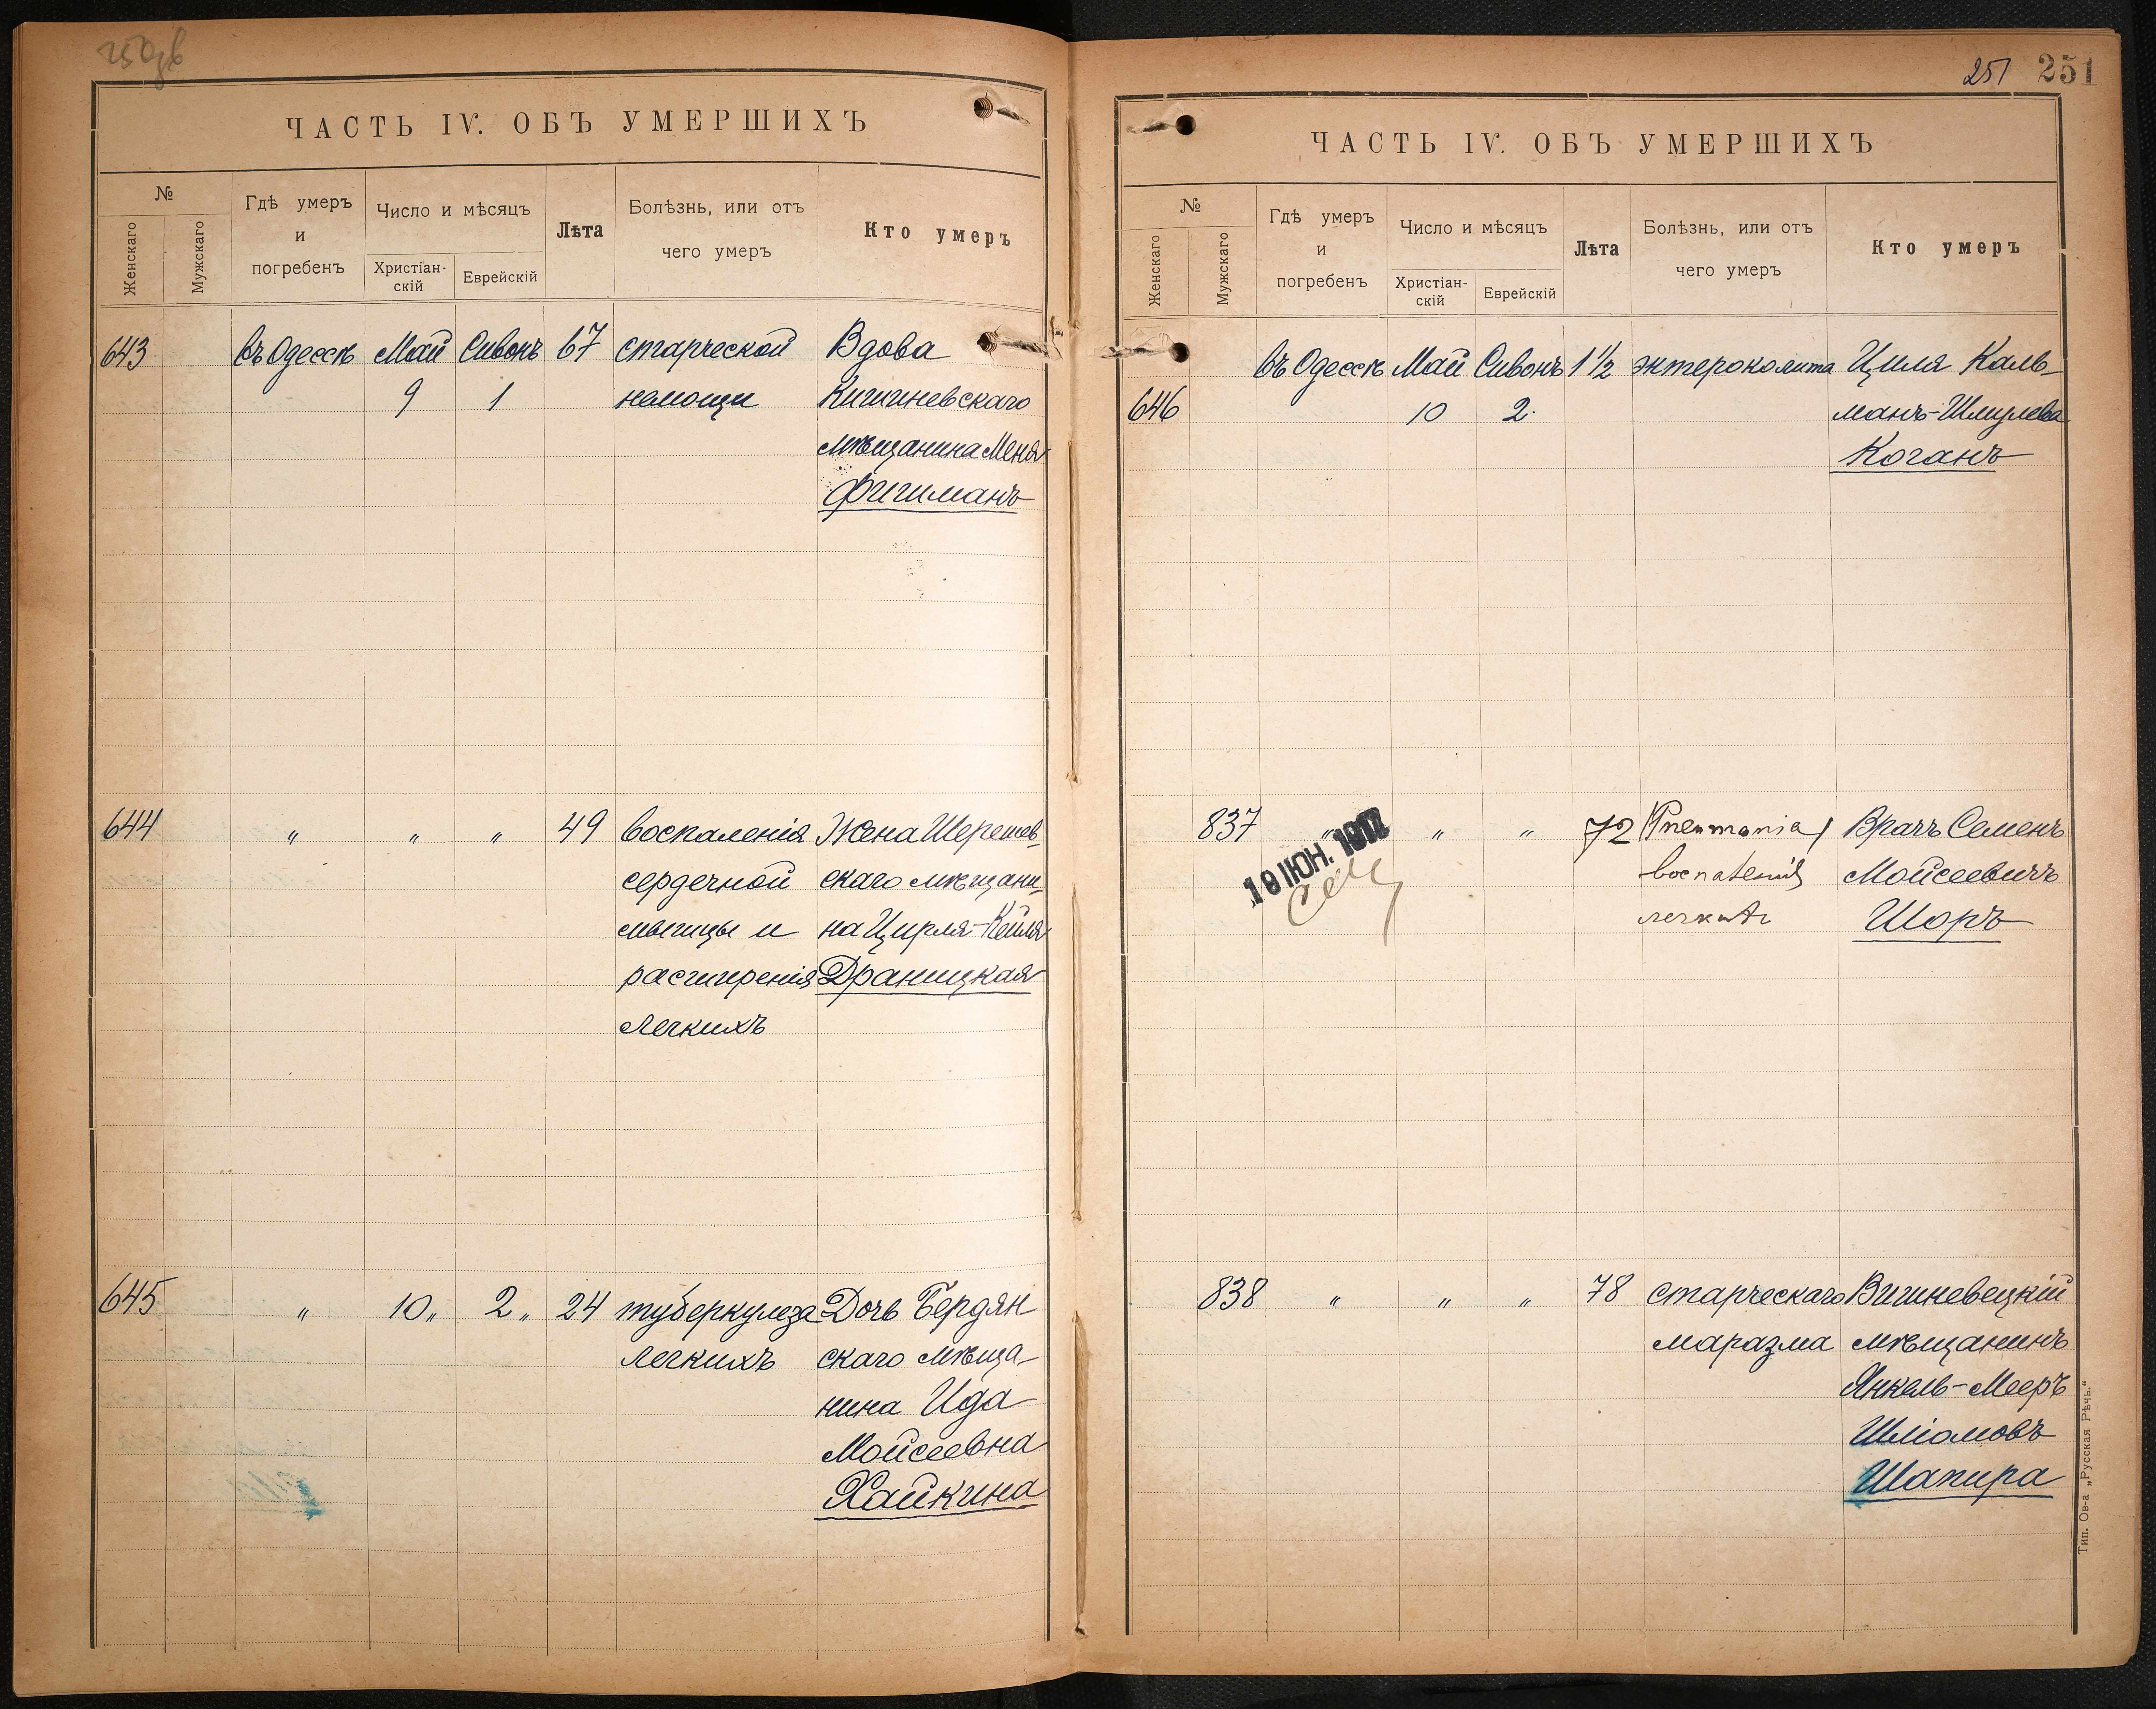 ЧАСТЬ IV. ОБЪ УМЕРШИХЪ
№
Женскаго
Мужскаго
Гдѣ умеръ
и
погребенъ
Число и мѣсяцъ
Христіан-
скій
Еврейскій
Лѣта
Болѣзнь, или отъ
чего умеръ
Кто умеръ
643 въ Одессѣ Май Сивонъ 67 старческой Вдова
9 1 немощи Кишиневскаго
мѣщанина Меня
Фишманъ
644 " " " 49 воспаленія Жена Шерешев-
сердечной скаго мѣщани-
мышцы и на Цирля-Кейля
расширенія Драницкая
легкихъ
645 " 10 " 2 " 24 туберкулеза Дочь Бердян
легкихъ скаго мѣща-
нина Ида
Мойсеевна
Хайкина
251 251
ЧАСТЬ IV. ОБЪ УМЕРШИХЪ
№
Женскаго
Мужскаго
Гдѣ умеръ
и
погребенъ
Число и мѣсяцъ
Христіан-
скій
Еврейскій
Лѣта
Болѣзнь, или отъ
чего умеръ
Кто умеръ
въ Одессѣ Май Сивонъ 1 1/2 энтероколита Циля Каль-
646 10 2. манъ-Шмулева
Коганъ
837 " " " 72 (Pneumania) Врачъ Семенъ
воспаленія Мойсеевичъ
легкихъ Шоръ
19 ІЮН. 1917
838 " " " 78 старческаго Вишневецкій
маразма мѣщанинъ
Янкель-Мееръ
Шліомовъ
Шапира
Тип. Ов-а „Русская Рѣчь.“